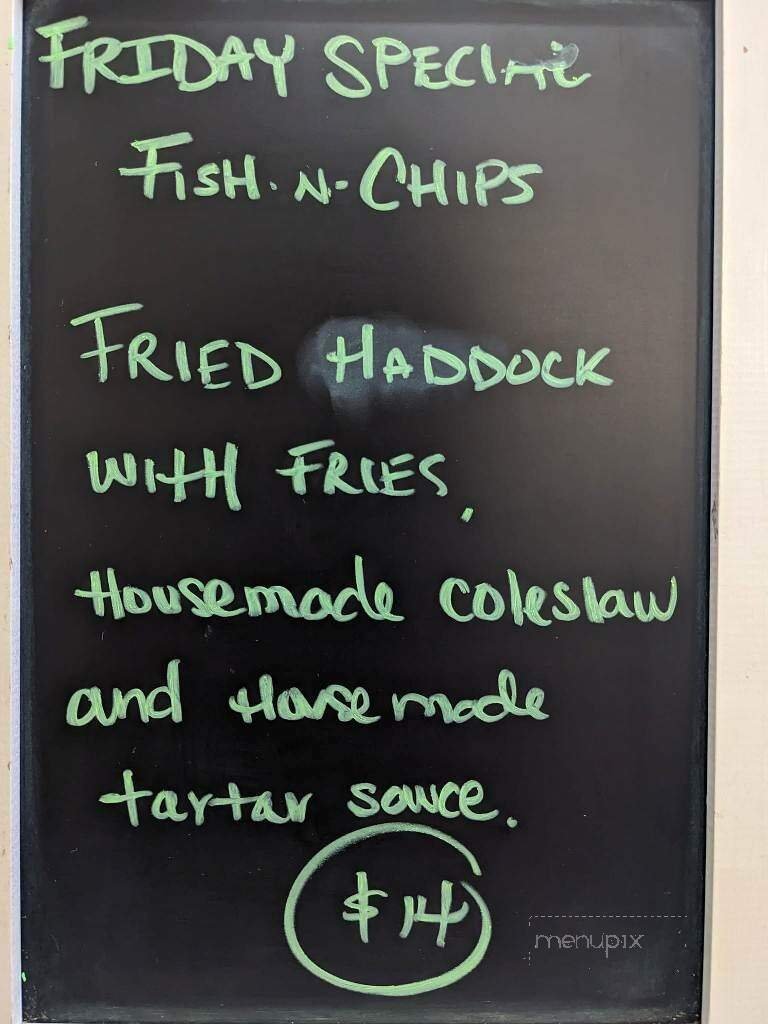 FRIDAY SPECIAL
FISH-N-CHIPS
FRIED HADDOCK
WITH FRIES,
Housemade coleslaw
and Housemade
tartar sauce.
$14
menupix